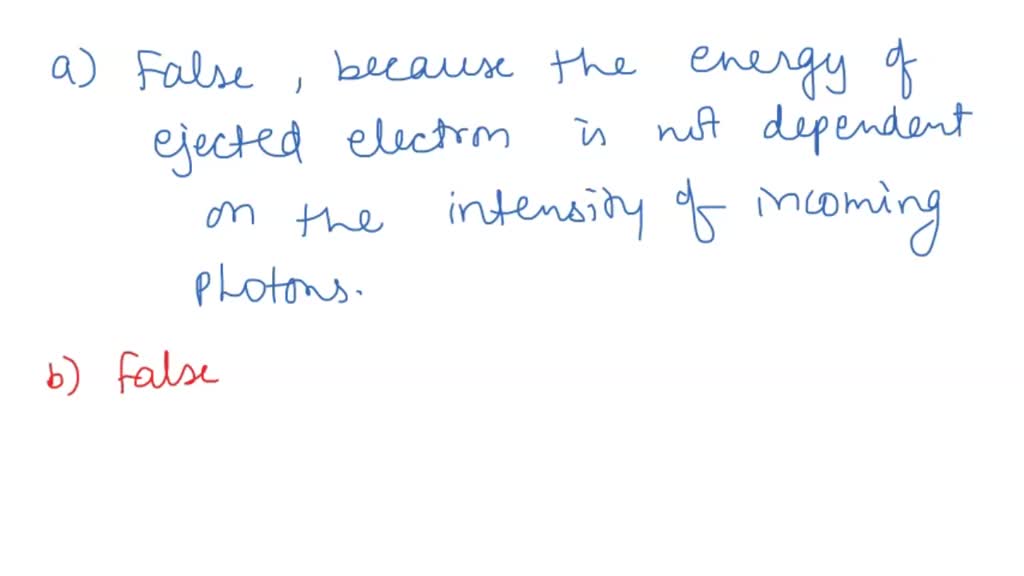 a) False, because the energy of
ejected electron is not dependent
on the intensity of incoming
photons.
b) False